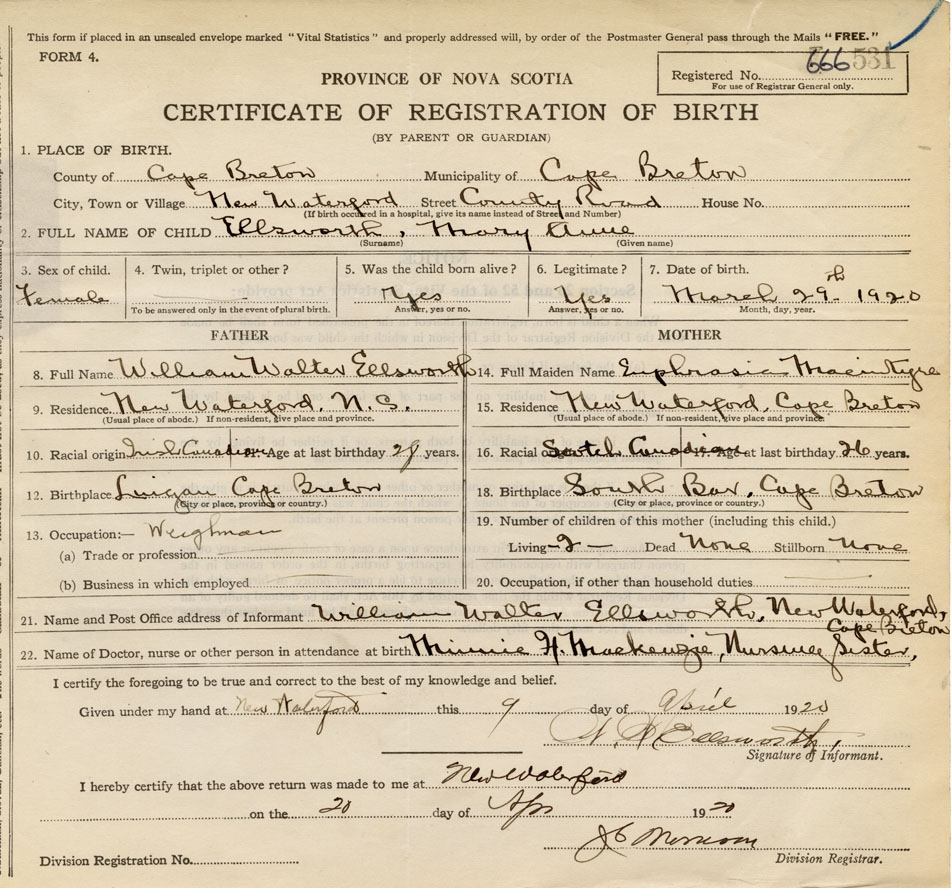 This form if placed in an unsealed envelope marked "Vital Statistics" and properly addressed will, by order of the Postmaster General pass through the Mails "FREE."
FORM 4.
666531
Registered No.
For use of Registrar General only.
PROVINCE OF NOVA SCOTIA
CERTIFICATE OF REGISTRATION OF BIRTH
(BY PARENT OR GUARDIAN)
1. PLACE OF BIRTH.
County of Cape Breton Municipality of Cape Breton
City, Town or Village New Waterford Street County Road House No.
(If birth occurred in a hospital, give its name instead of Street and Number)
2. FULL NAME OF CHILD Ellsworth, Mary Anne
(Surname) (Given name)
3. Sex of child. 4. Twin, triplet or other? 5. Was the child born alive? 6. Legitimate? 7. Date of birth.
Female Yes Yes March 29th 1920
To be answered only in the event of plural birth. Answer, yes or no. Answer, yes or no. Month, day, year.
FATHER MOTHER
8. Full Name William Walter Ellsworth 14. Full Maiden Name Euphrasia MacIntyre
9. Residence New Waterford, N.S. 15. Residence New Waterford, Cape Breton
(Usual place of abode.) If non-resident, give place and province. (Usual place of abode.) If non-resident, give place and province.
10. Racial origin Irish Canadian Age at last birthday years. 16. Racial origin Scotch Canadian Age at last birthday 26 years.
12. Birthplace Lingan Cape Breton 18. Birthplace South Bar, Cape Breton
(City or place, province or country.) (City or place, province or country.)
13. Occupation:— Weighman 19. Number of children of this mother (including this child.)
(a) Trade or profession Living -2- Dead None Stillborn None
(b) Business in which employed 20. Occupation, if other than household duties
21. Name and Post Office address of Informant William Walter Ellsworth, New Waterford,
Cape Breton
22. Name of Doctor, nurse or other person in attendance at birth Minnie H. Mackenzie, Nursing Sister,
I certify the foregoing to be true and correct to the best of my knowledge and belief.
Given under my hand at New Waterford this 9 day of April 1920
W. Ellsworth,
Signature of Informant.
I hereby certify that the above return was made to me at New Waterford
on the 20 day of Apr 1920
J C Morrison
Division Registration No. Division Registrar.